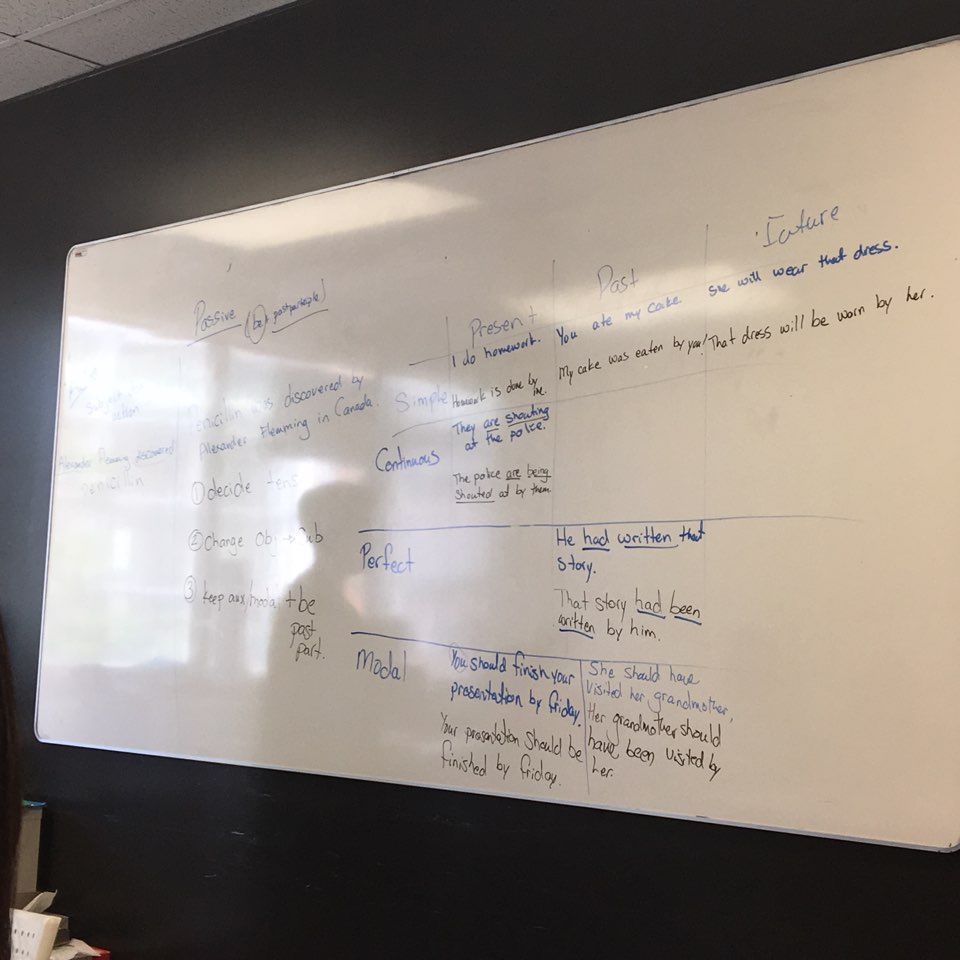 Passive (be + past participle)
subject
action
Alexander Flemming discovered
penicillin
Penicillin was discovered by
Alexander Flemming in Canada.
① decide tens
② Change Obj → Sub
③ keep aux/modal + be
past
part.
Present
Past
Future
Simple
I do homework.
Homework is done by
me.
You ate my cake
My cake was eaten by you!
She will wear that dress.
That dress will be worn by her.
Continuous
They are shouting
at the police.
The police are being
shouted at by them
Perfect
He had written that
story.
That story had been
written by him.
Modal
You should finish your
presentation by friday.
Your presentation should be
finished by friday.
She should have
visited her grandmother,
Her grandmother should
have been visited by
her.